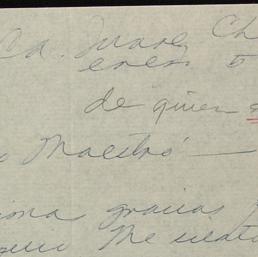 Cd. Juarez Ch
enero 5
de quien
Maestro —
gracias
Me siento